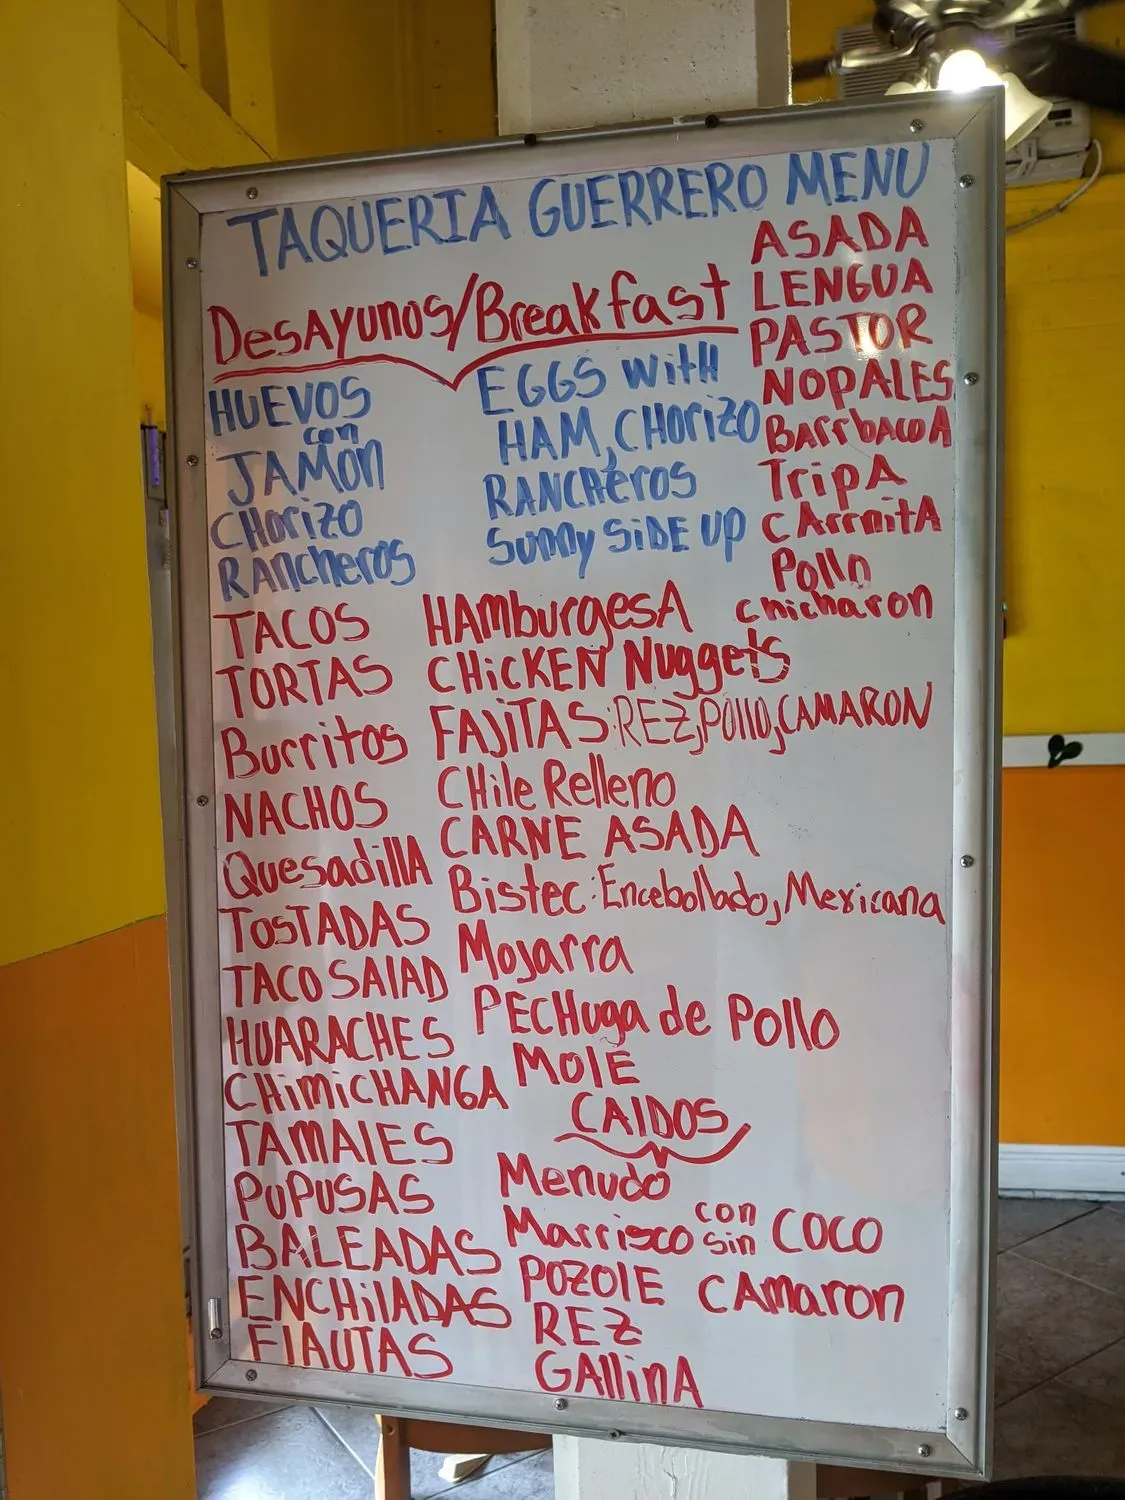 TAQUERIA GUERRERO MENU
Desayunos/Breakfast
HUEVOS
con
JAMON
CHORIZO
RANCHEROS
EGGS WITH
HAM, CHORIZO
RANCHEROS
SUNNY SIDE UP
ASADA
LENGUA
PASTOR
NOPALES
BARrbacoA
TripA
CArrnitA
Pollo
chicharon
TACOS
TORTAS
Burritos
NACHOS
QuesadillA
TOSTADAS
TACO SALAD
HUARACHES
CHIMICHANGA
TAMALES
PUPUSAS
BALEADAS
ENCHILADAS
FLAUTAS
HAmburgesA
CHICKEN Nuggets
FAJITAS: REZ, POLLO, CAMARON
CHile Relleno
CARNE ASADA
Bistec: Encebollado, Mexicana
Mojarra
PECHUga de Pollo
MOLE
CALDOS
Menudo
Marrisco con sin COCO
POZOLE CAmaron
REZ
GAllinA